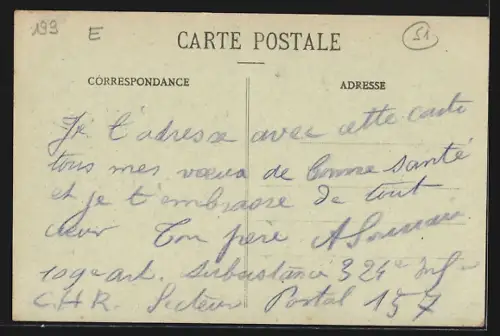 199 E 51
CARTE POSTALE
CORRESPONDANCE
ADRESSE
Je t'adresse avec cette carte
tous mes vœux de bonne santé
et je t'embrasse de tout
cœur Ton père A
109e art. Subsistance 324e Inf
C.H.R. Secteur Postal 157